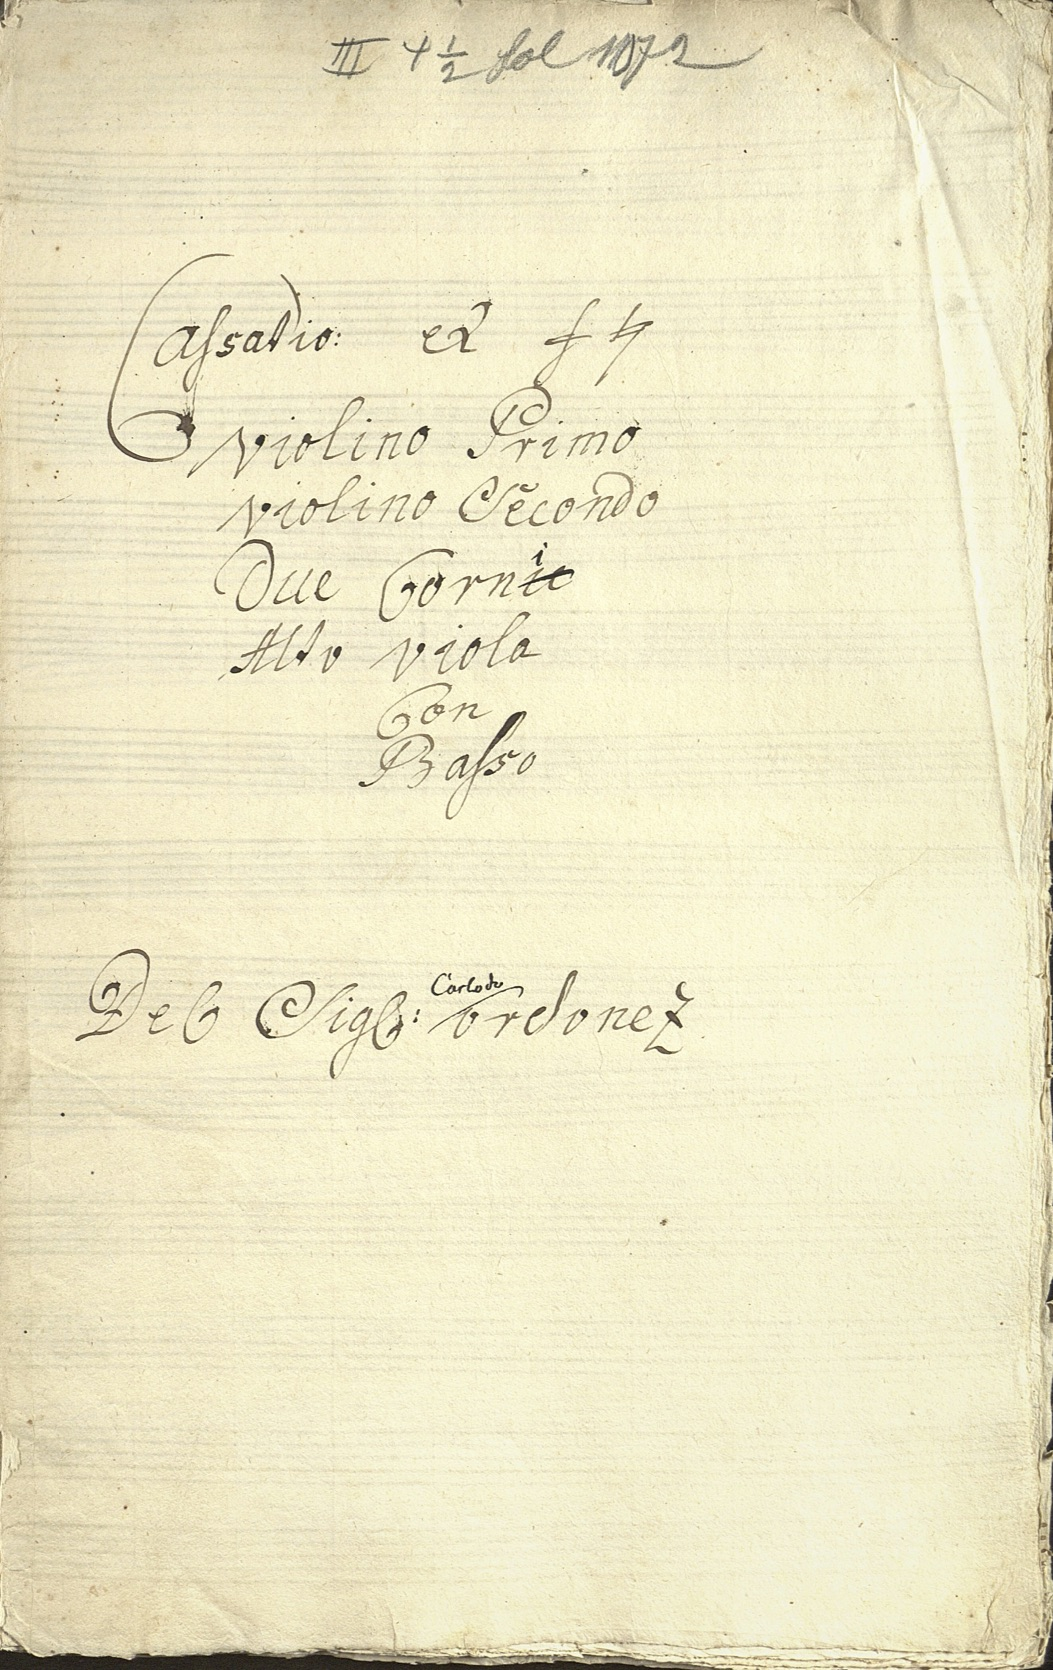 III 4 1/2 fol 1072
Cassatio: ex f ♮
Violino Primo
Violino Secondo
Due Corni
Alto viola
Con
Basso
Carlo do
Del Sigl: Ordonez